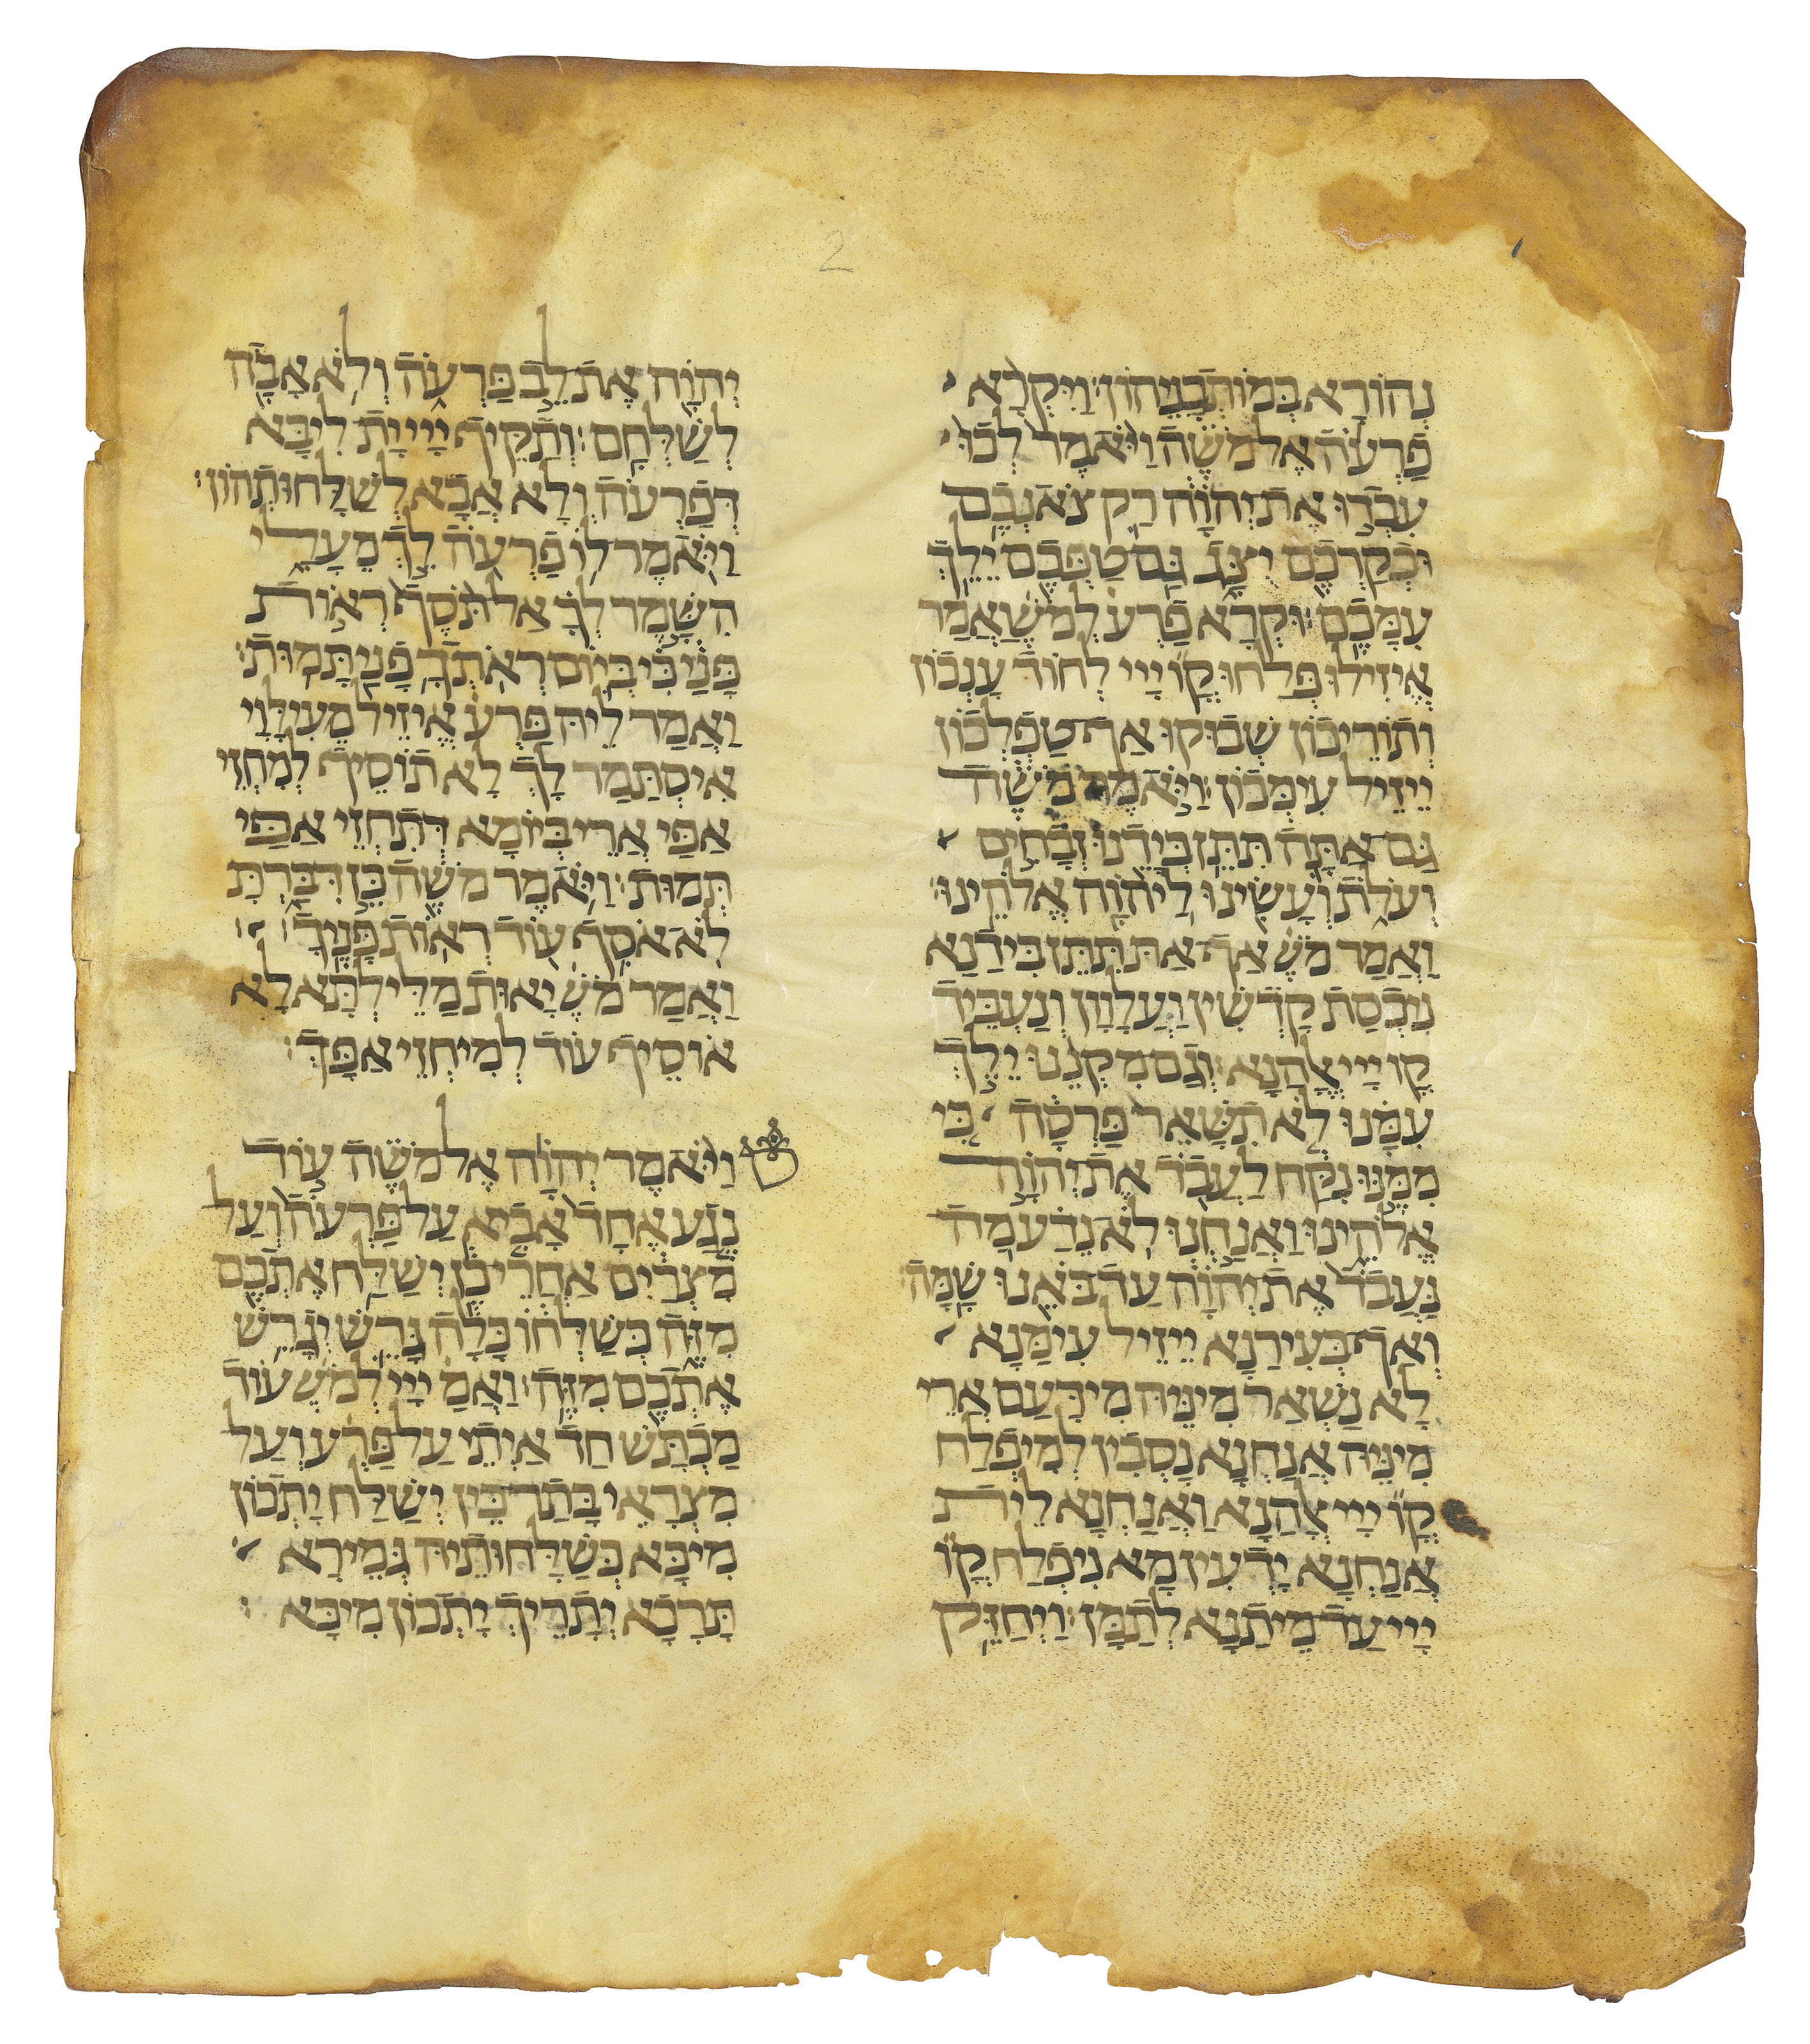 2
נְהוֹרָא בְּמוֹתְבָנֵיהוֹן׃ וַיִּקְרָא
פַרְעֹה אֶל מֹשֶׁה וַיֹּאמֶר לְכוּ
עִבְדוּ אֶת יְהוָה רַק צֹאנְכֶם
וּבְקַרְכֶם יֻצָּג גַּם טַפְּכֶם יֵלֵךְ
עִמָּכֶם׃ וּקְרָא פַרְעֹ לְמֹשֶׁ וַאֲמַר
אֱיזִילוּ פְּלַחוּ קֳ יְיָ לְחוֹד עָנְכוֹן
וְתוֹרֵיכוֹן שְׁבוּקוּ אַף טַפְלְכוֹן
יֵיזֵיל עִימְּכוֹן׃ וַיֹּאמֶר מֹשֶׁה
גַּם אַתָּה תִּתֵּן בְּיָדֵנוּ זְבָחִים
וְעֹלֹת וְעָשִׂינוּ לַיהוָה אֱלֹהֵינוּ׃
וַאֲמַר מֹשֶׁ אַף אַתְּ תִּתֵּן בִּידַנָא
נִכְסַת קֻדְשִׁין וַעֲלָוָן וְנַעֲבֵיד
קֳ יְיָ אֱלָהַנָא׃ וְגַם מִקְנֵנוּ יֵלֵךְ
עִמָּנוּ לֹא תִשָּׁאֵר פַּרְסָה כִּי
מִמֶּנּוּ נִקַּח לַעֲבֹד אֶת יְהוָה
אֱלֹהֵינוּ וַאֲנַחְנוּ לֹא נֵדַע מָה
נַּעֲבֹד אֶת יְהוָה עַד בֹּאֵנוּ שָׁמָּה׃
וְאַף בְּעִירַנָא יֵיזֵיל עִימַּנָא
לָא נַשְׁאַר מִינֵּיהּ מִידַּעַם אֲרֵי
מִינֵּיהּ אֲנַחְנָא נָסְבִין לְמִיפְלַח
קֳ יְיָ אֱלָהַנָא וַאֲנַחְנָא לֵית
אֲנַחְנָא יָדְעִין מָא נִיפְלַח קֳ
יְיָ עַד מֵיתַנָא לְתַמָּן׃ וַיְחַזֵּק
יְהוָה אֶת לֵב פַּרְעֹה וְלֹא אָבָה
לְשַׁלְּחָם׃ וְתַקֵּיף יְיָ יָת לִיבָּא
דְּפַרְעֹה וְלָא אֲבָא לְשַׁלָּחוּתְהוֹן׃
וַיֹּאמֶר לוֹ פַרְעֹה לֵךְ מֵעָלָי
הִשָּׁמֶר לְךָ אַל תֹּסֶף רְאוֹת
פָּנַי כִּי בְּיוֹם רְאֹתְךָ פָנַי תָּמוּת׃
וַאֲמַר לֵיהּ פַּרְעֹ אֱיזֵיל מֵעִילָּוַי
אִיסְתַּמַר לָךְ לָא תוֹסֵיף לְמִחְזֵי
אַפַּי אֲרֵי בְּיוֹמָא דְּתִחְזֵי אַפַּי
תְּמוּת׃ וַיֹּאמֶר מֹשֶׁה כֵּן דִּבַּרְתָּ
לֹא אֹסִף עוֹד רְאוֹת פָּנֶיךָ׃
וַאֲמַר מֹשֶׁ יָאוּת מַלֵּילְתָּא לָא
אוֹסֵיף עוֹד לְמִיחְזֵי אַפָּךְ׃
וַיֹּאמֶר יְהוָה אֶל מֹשֶׁה עוֹד
נֶגַע אֶחָד אָבִיא עַל פַּרְעֹה וְעַל
מִצְרַיִם אַחֲרֵי כֵן יְשַׁלַּח אֶתְכֶם
מִזֶּה כְּשַׁלְּחוֹ כָּלָה גָּרֵשׁ יְגָרֵשׁ
אֶתְכֶם מִזֶּה׃ וַאֲמַ יְיָ לְמֹשֶׁ עוֹד
מַכְתָּשׁ חַד אַיְתֵי עַל פַּרְעֹ וְעַל
מִצְרָאֵי בָּתַר כֵּין יְשַׁלַּח יָתְכוֹן
מִיכָּא כְּשַׁלָּחוּתֵיהּ גְּמֵירָא
תָּרָכָא יְתָרֵיךְ יָתְכוֹן מִיכָּא׃